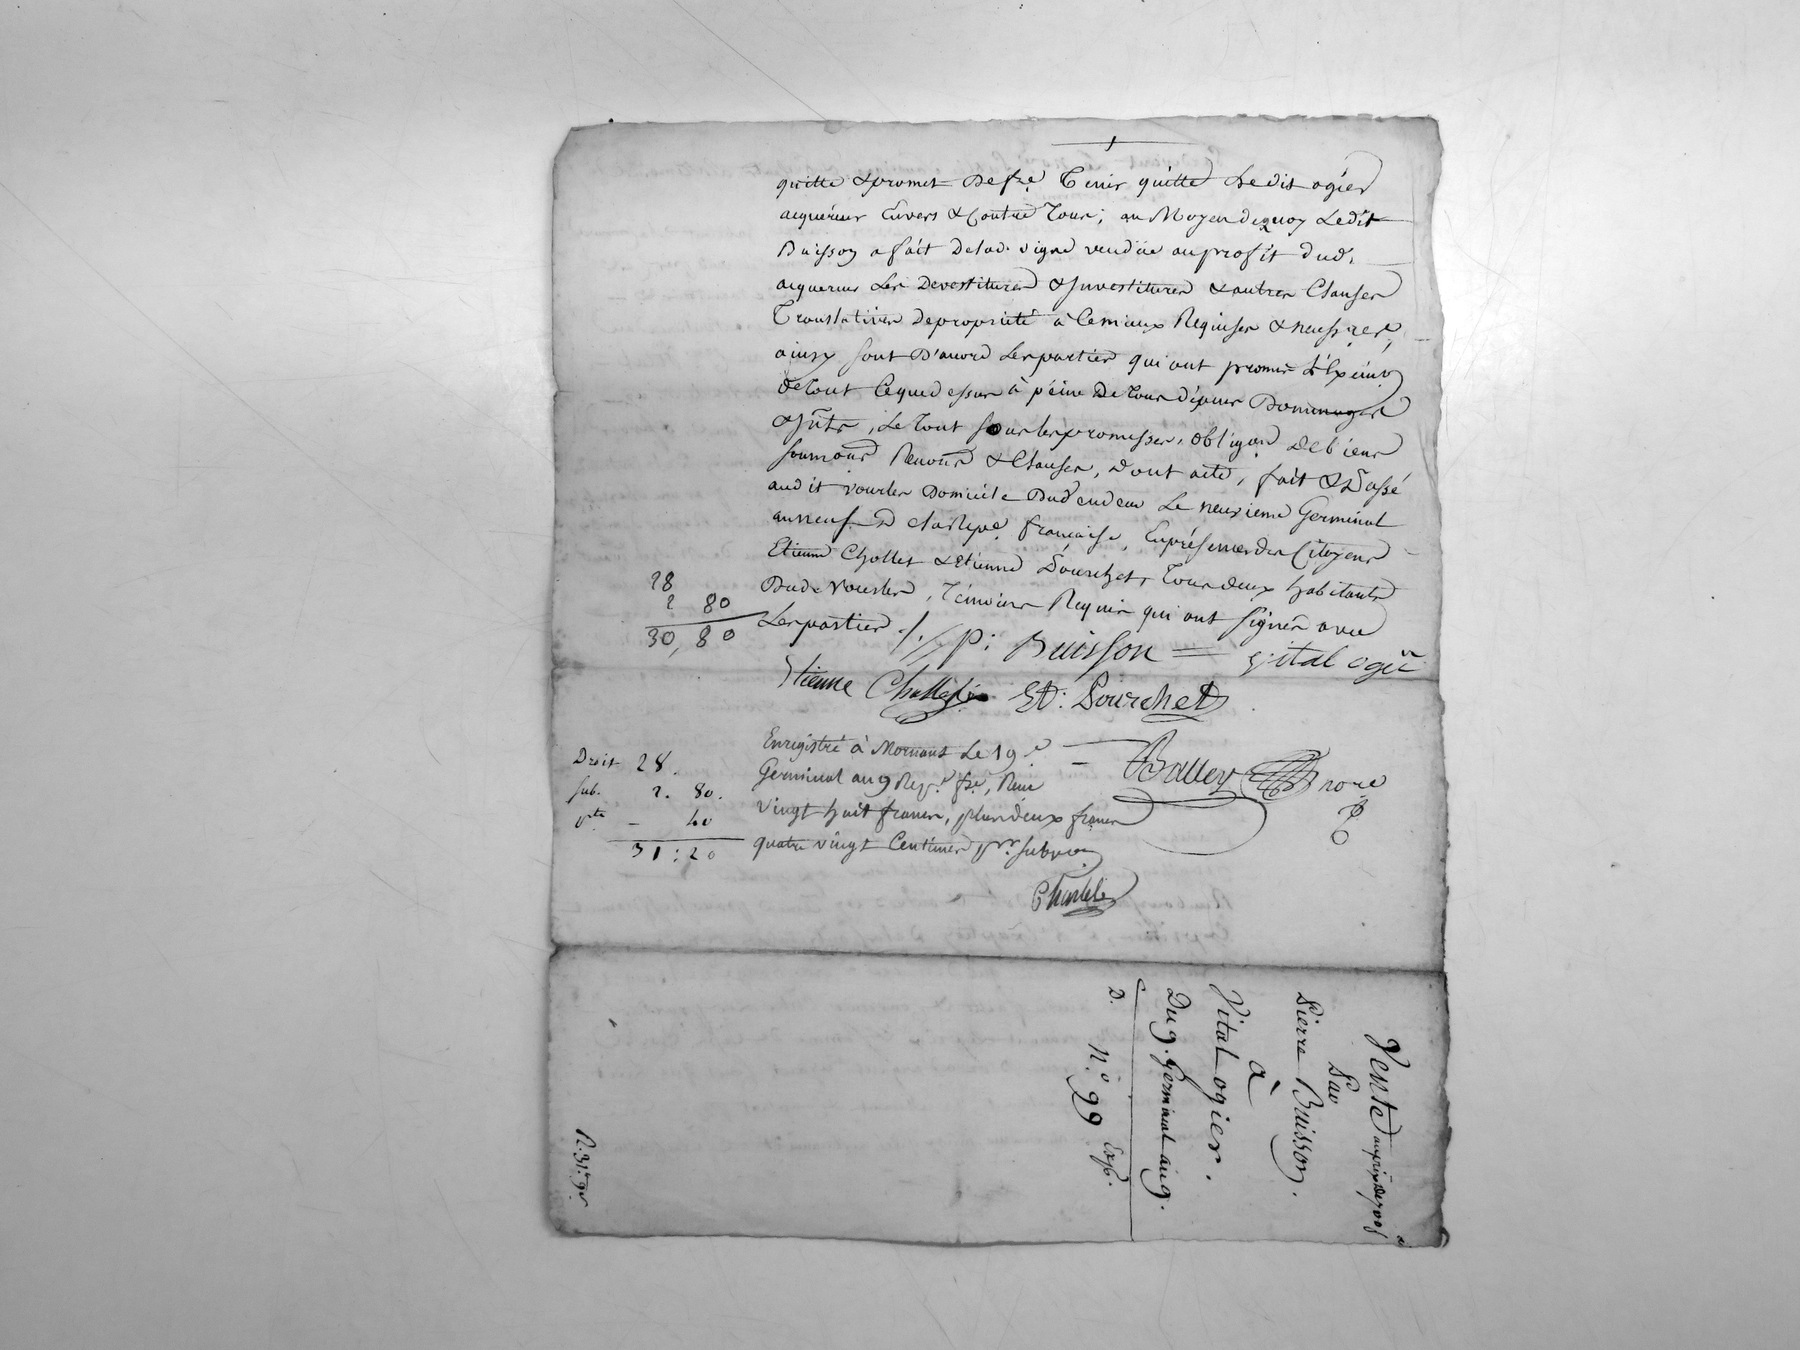 quitte & promet de fre. tenir quitte Ledit ogier
acquéreur Envers & Contre Tous; au Moyen dequoy Ledit
Buisson a fait delad. vigne vendüe au profit dud.
acquereur Les Devestitures & Investitures & autres Clauses
Translatives depropriété à Cemieux Requises & necessres.
ainsy sont D'accord Les parties qui ont promis
detout Cequedessus à peine De Tous dépens Dommages
& Jnts, Le Tout sous les promesses, obligaon de biens
soumons Renons & Clauses, dont acte, fait & Passé
audit vourles Domicile Dud vendeur Le neuvieme Germinal
an neuf d elaRepe. française, En présence des Citoyens
Etienne Chollet & Etienne Pourchet, Tous deux habitants
Dud. Vourles, Témoins Requis qui ont signés avec
Les parties ./.
28
2 80
30,80
P: Buisson = vital ogier
Etienne Chollet Et: Pourchet
Enregistré à Mornant Le 19e.
Germinal an 9 Rep.e fse, Reçu
Vingt huit francs, plus deux francs
quatre vingt Centimes pr. subvon.
Chastel
Balley nore
Droit 28.
sub. 2. 80.
pte - 40
31:20
Vente au prix de 700f
Par
Pierre Buisson.
à
Vital ogier.
Du 9. Germinal an 9.
D. N.o 99 Exp.